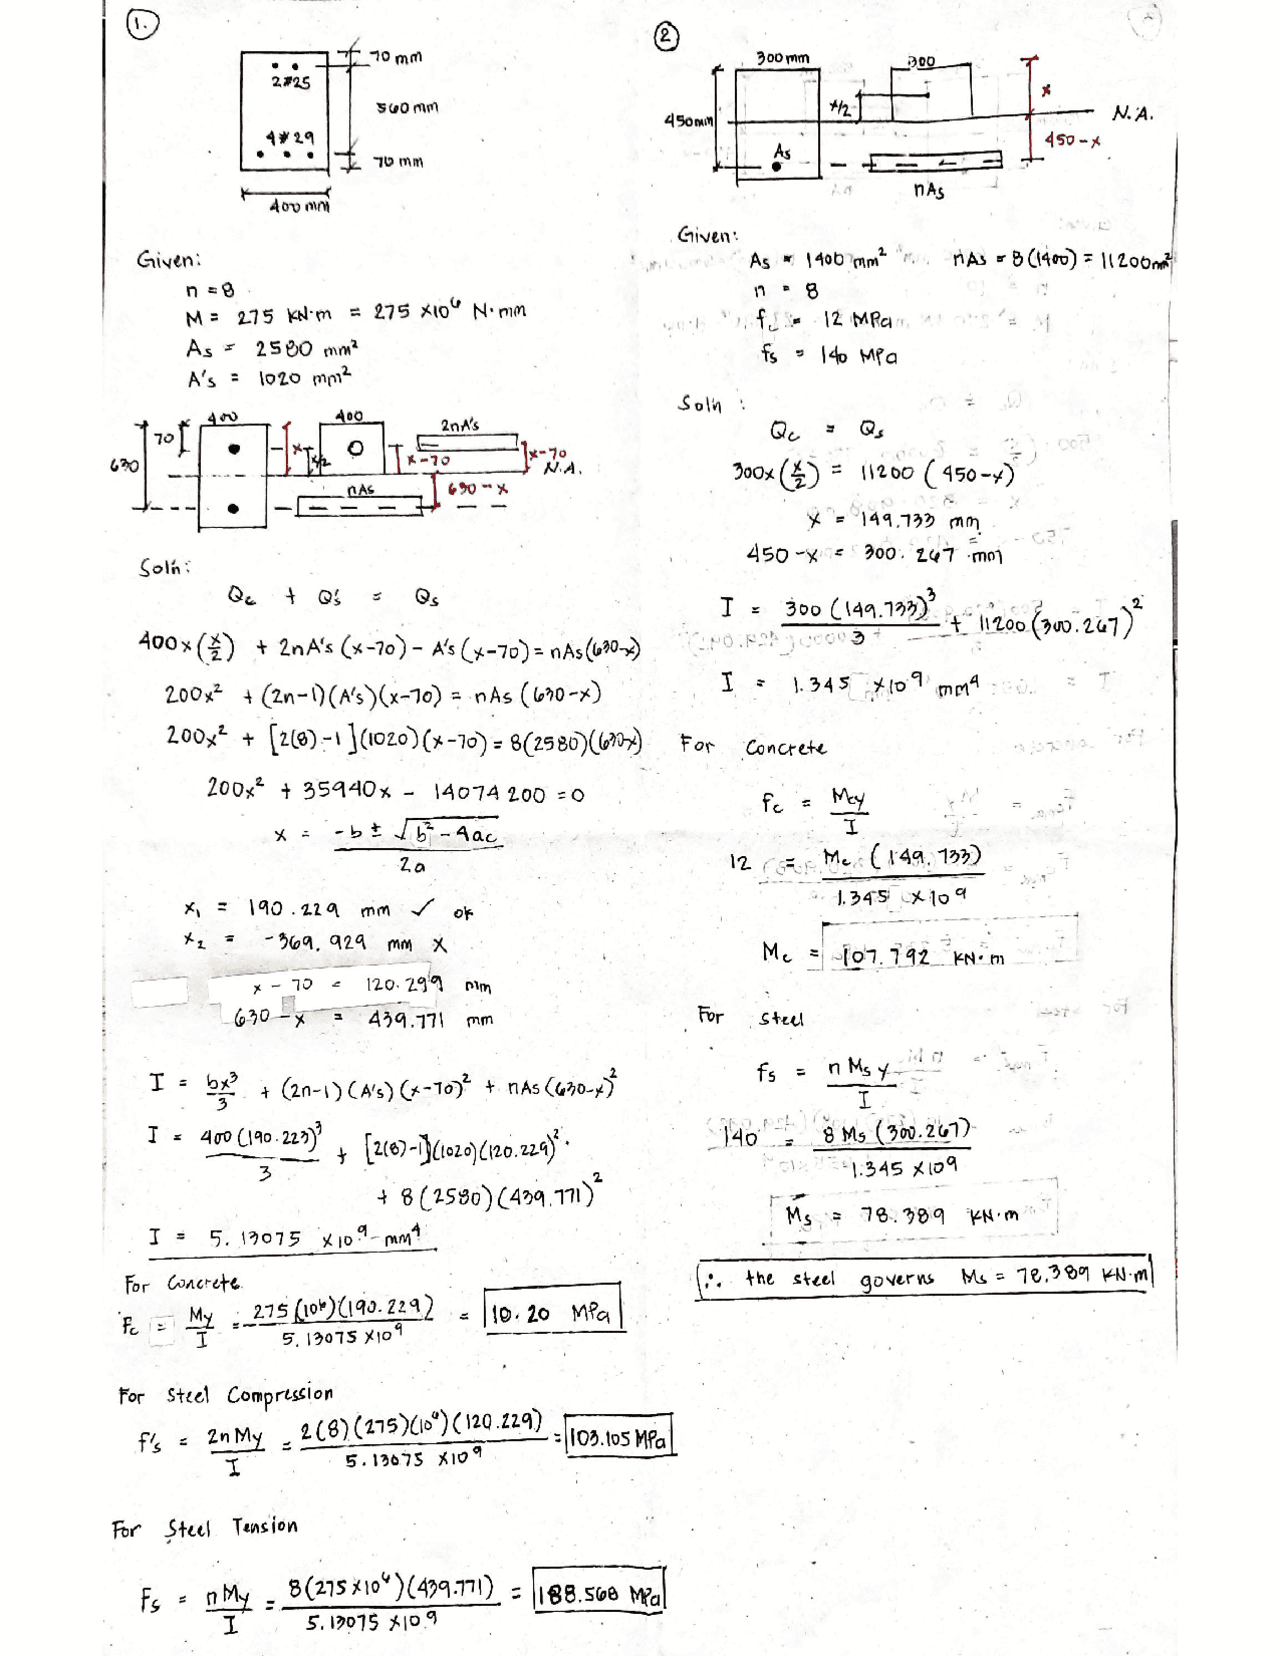 1.
70 mm
2#25
560 mm
4#29
70 mm
400 mm
Given:
n = 8
M = 275 KN·m = 275 x10⁶ N·mm
As = 2580 mm²
A's = 1020 mm²
400
400
2nA's
70
x
x/2
x-70
x-70
630
N.A.
nAs
630-x
Soln:
Qc + Q's = Qs
400x(x/2) + 2nA's(x-70) - A's(x-70) = nAs(630-x)
200x² + (2n-1)(A's)(x-70) = nAs(630-x)
200x² + [2(8)-1](1020)(x-70) = 8(2580)(630-x)
200x² + 35940x - 14074200 = 0
x = -b ± √b² - 4ac / 2a
x₁ = 190.229 mm ✓ ok
x₂ = -369.929 mm X
x - 70 = 120.299 mm
630 - x = 439.771 mm
I = bx³/3 + (2n-1)(A's)(x-70)² + nAs(630-x)²
I = 400(190.223)³/3 + [2(8)-1](1020)(120.229)²
+ 8(2580)(439.771)²
I = 5.13075 x10⁹ mm⁴
For Concrete
Fc = My/I = 275(10⁶)(190.229)/5.13075 x10⁹ = 10.20 MPa
For Steel Compression
f's = 2nMy/I = 2(8)(275)(10⁶)(120.229)/5.13075 x10⁹ = 103.105 MPa
For Steel Tension
Fs = nMy/I = 8(275x10⁶)(439.771)/5.13075 x10⁹ = 188.568 MPa
2
300mm
300
x
x/2
450mm
N.A.
450-x
As
nAs
Given:
As = 1400 mm² nAs = 8(1400) = 11200mm²
n = 8
fc = 12 MPa
fs = 140 MPa
Soln:
Qc = Qs
300x(x/2) = 11200(450-x)
x = 149.733 mm
450-x = 300.267 mm
I = 300(149.733)³/3 + 11200(300.267)²
I = 1.345 x10⁹ mm⁴
For Concrete
fc = Mcy/I
12 = Mc(149.733)/1.345 x10⁹
Mc = 107.792 KN·m
For Steel
fs = nMsy/I
140 = 8Ms(300.267)/1.345 x10⁹
Ms = 78.389 KN·m
∴ the steel governs Ms = 78.389 KN·m